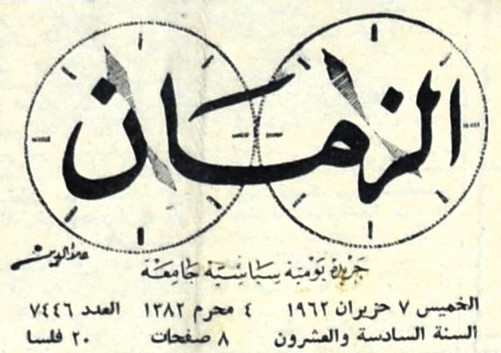 الزمان
جريدة يومية سياسية جامعة
الخميس ٧ حزيران ١٩٦٢ ٤ محرم ١٣٨٢ العدد ٧٤٤٦
السنة السادسة والعشرون ٨ صفحات ٢٠ فلسا